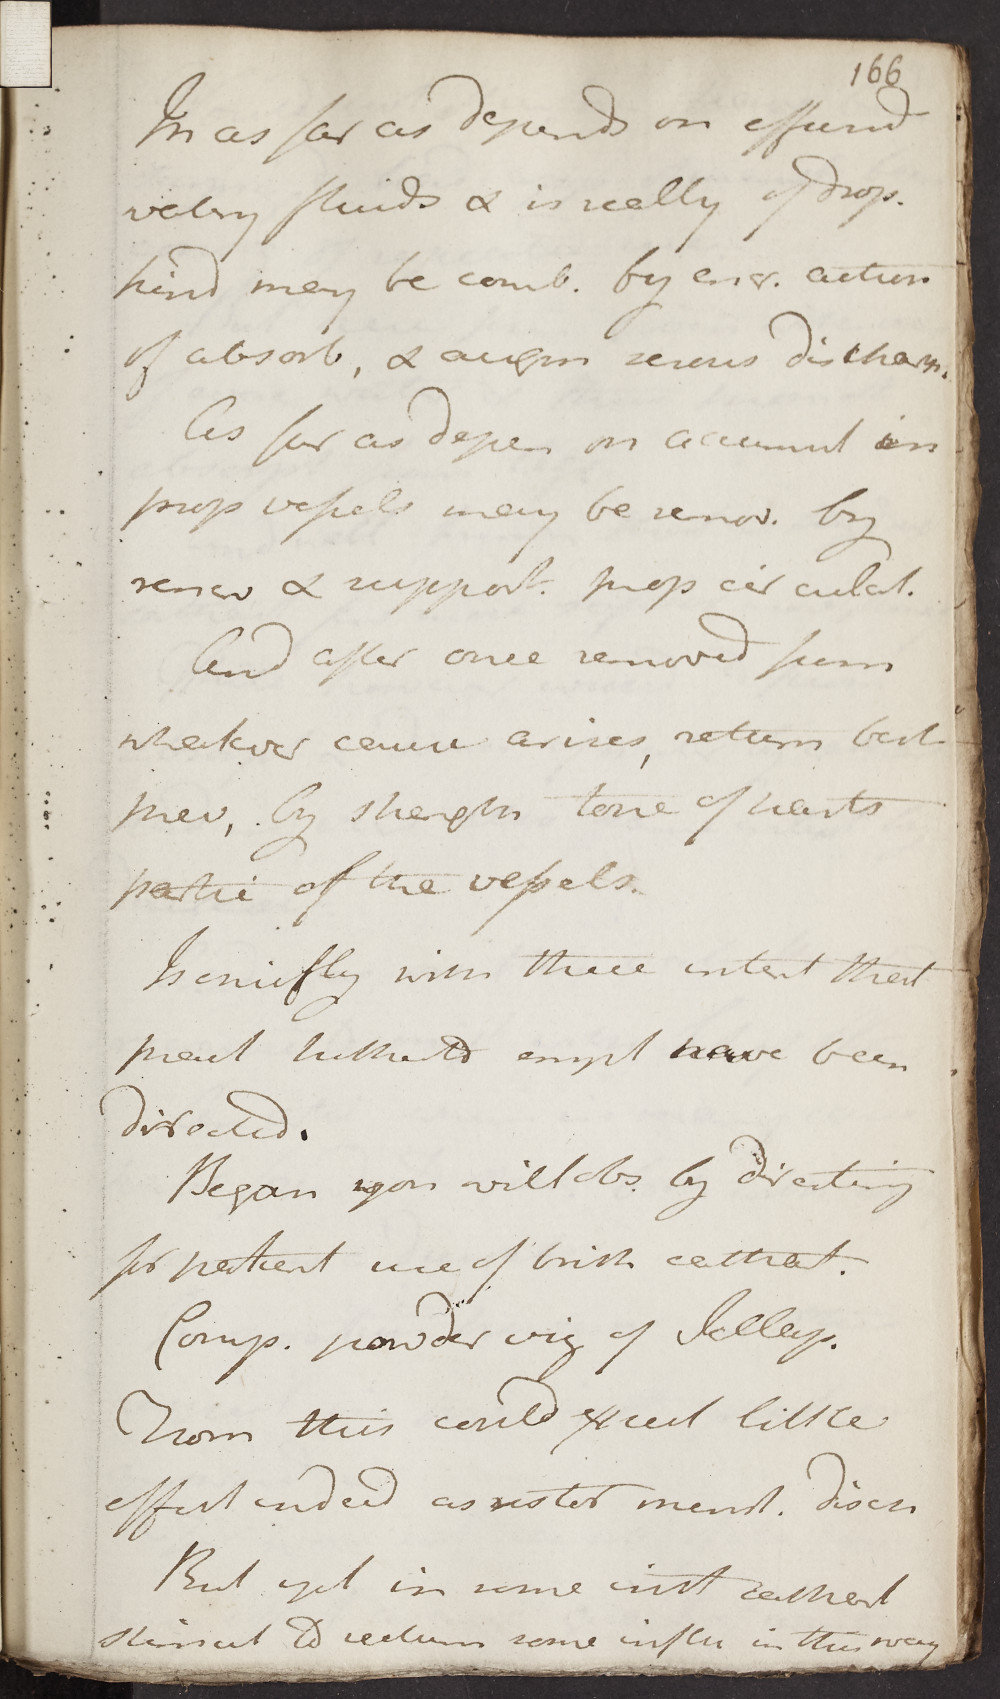 166
In as far as depends on effused
watery fluids & is really of drop.
kind may be comb. by encr. action
of absorb, & augm serous discharg.
As far as depen on accumul in
prop vessels may be remov. by
renew & support. prop circulat.
And after once removed from
whatever cause arises, return best
prev, by strength tone of hearts
partic of the vessels.
Is chiefly with these intent that
pract hitherto empl have been
directed.
Began you will obs. by directing
for patient use of brisk cathart.
Comp. powder viz of Jallap.
From this could expect little
effect indeed as restor menst. disch
But yet in some inst cathart
stimul to rectum some influ in this way